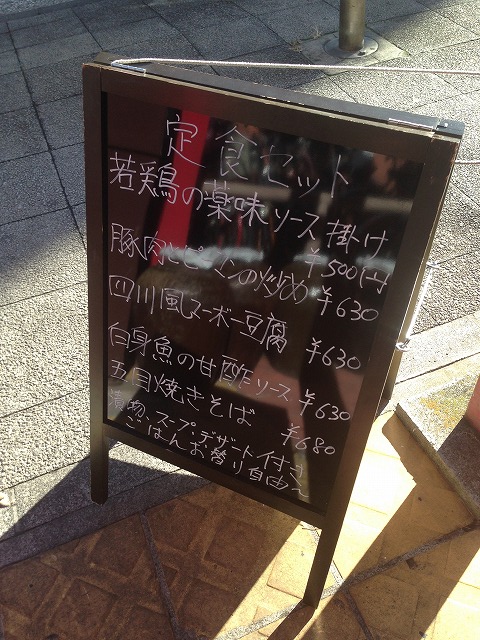 定食セット
若鶏の薬味ソース掛け
¥500(円)
豚肉とピーマンの炒め ¥630
四川風マーボー豆腐 ¥630
白身魚の甘酢ソース ¥630
五目焼きそば ¥680
漬物、スープ、デザート付き
ごはんお替り自由